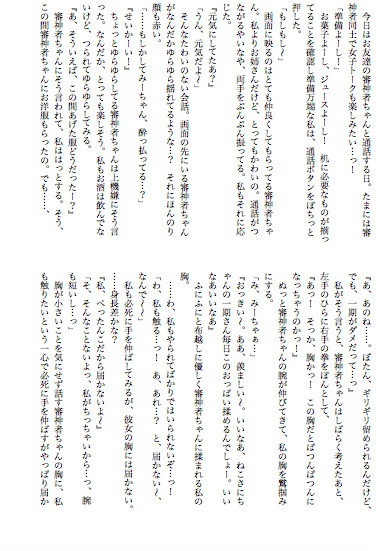 今日はお友達の審神者ちゃんと通話する日。たまには審
神者同士で女子トークも楽しみたい…っ！
「準備よーし！」
　お菓子よーし、ジュースよーし！　机に必要なものが揃っ
てることを確認し準備万端な私は、通話ボタンをぽちっと
押した。
「もしもし！」
　画面に映るのはとても仲良くしてもらってる審神者ちゃ
ん。私よりお姉さんだけど、とってもかわいの。通話がつ
ながるやいなや、両手をぶんぶん振ってる。私もそれに応
じた。
『元気にしてたぁ？』
「うん、元気だよ！」
　そんなたわいのない会話。画面の先にいる審神者ちゃん
がなんだかゆらゆら揺れてるような…？　それにほんのり
顔も赤い。
「……もしかしてみーちゃん、酔っ払ってる…？」
『せいかーい！』
　ちょっとゆらゆらしてる審神者ちゃんは上機嫌にそう言
った。なんだか、とっても楽しそう。私もお酒は飲んでな
いけど、つられてゆらゆらしてみる。
『あ、そういえば、この間あげた服どうだったー？』
　審神者ちゃんにそう言われて、私ははっとする。そう、
この間審神者ちゃんにお洋服もらったの。でも……、
『あ、あのね…。ぼたん、ギリギリ留められるんだけど、
でも、一期がダメだって…っ』
　私がそう言うと、審神者ちゃんはしばらく考えたあと、
左手のひらに右手の拳をぽんとして、
『あっ！　そっか、胸かっ！　この胸だとぱつんぱつんに
なっちゃうのかっー！』
　ぬっと審神者ちゃんの腕が伸びてきて、私の胸を鷲掴み
にする。
「み、みーちゃぁ…」
『おっきい～、ああ、羨ましい～。いいなあ、ねこさにち
ゃんの一期さん毎日このおっぱい揉めるんでしょー。いい
なあいいなあ』
　ふにふにと布越しに優しく審神者ちゃんに揉まれる私の
胸。
　……わ、私もやられてばかりではいられないぞ…っ！
「わ、私も触る…っ！　あ、あれ…？　と、届かない～、
なんで～～」
　私も必死に手を伸ばしてみるが、彼女の胸には届かない。
……身長差かな？
『私、ぺったんこだから届かないよ～』
「そ、そんなことないよっ、私がちっちゃいから…っ、腕
も短いし…っ」
　胸が小さいことを気にせず話す審神者ちゃんの胸に、私
も触りたいという一心で必死に手を伸ばすがやっぱり届か